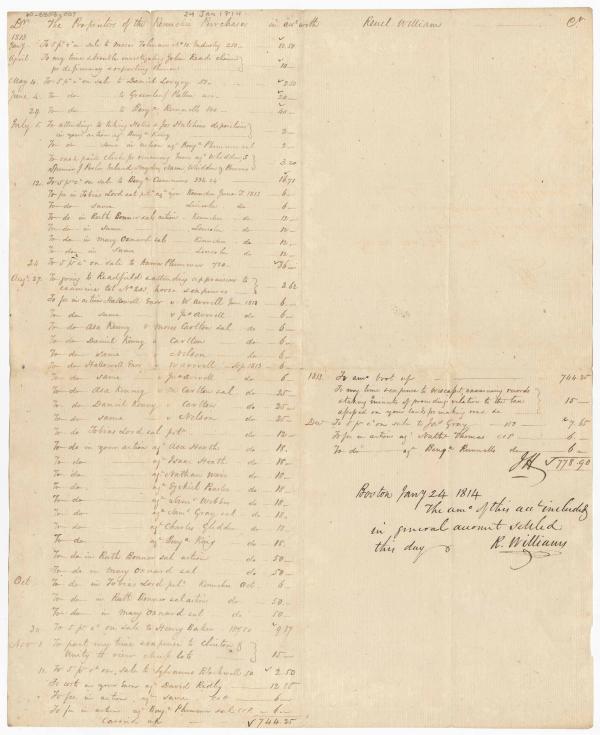 24 Jan 1814
Dr. The Proprietors of the Kennebec Purchase in acct with Reuel Williams Cr.
1813
Jany To 5 pr ct on sale to Moses
April To my time &
10.—
May 4. To 5 pr ct on sale to Daniel 50.— 2.50
June 4. To do to Greenleaf 20.—
24. To do to Benja Runnells 40.—
July 5. To attending to taking & Jos Hutchins deposition
in your action agt Benja King 2.—
To do same in action agt Benja Plummer 2.—
3.20
12. To 5 pr ct on sale to Benja Cumming 334.24 16.71
To fee in Tobias Lord sal petn agt you Kennebec June T. 1813 6.—
To do same Lincoln do 6.—
To do in Ruth Bonner sal action Kennebec do 12.—
To do in same Lincoln do 12.—
To do in Mary Oxnard sal Kennebec do 12.—
To do in same Lincoln do 12.—
24. To 5 pr ct on sale to Plummer 720.— 36.—
Augt 27. To going to Readfield & attending appraisers to
examine lot No horse & expenses 2.62
To fee in action Hallowell Exor v W Averell June 1813 6.—
To do same v Jno Averell do 6.—
To do Asa Kenny v Moses Carlton sal do 6.—
To do Daniel Kenny v Carlton do 6.—
To do same v Nelson do 6.—
To do Hallowell Exor v W Averell Sep 1813 6.—
To do same v Jno Averell do 6.—
To do Asa Kenny v M Carlton sal do 25.—
To do Daniel Kenny v Carlton do 25.—
To do same v Nelson do 25.—
To do Tobias Lord sal petn do 12.—
To do in your action agt Asa Heath do 18.—
To do agt Isaac Heath do 18.—
To do agt Nathan do 18.—
To do agt Ezekiel do 18.—
To do agt Webber do 18.—
To do agt Saml Gray sal do 18.—
To do agt Charles Glidden do 18.—
To do agt Benja King do 18.—
To do in Ruth Bonner sal action do 50.—
To do in Mary Oxnard sal do 50.—
Oct To do in Tobias Lord petn Kennebec Oct 6.—
To do in Ruth Bonner sal action do 50.—
To do in Mary Oxnard sal do 50.—
30. To 5 pr ct on sale to Henry Baker 9.87
Nov 1 To part my time & expense to Clinton &
Unity to view lots 15.—
11. To 5 pr ct on sale to Sylvanus 50 2.50
To cost in your favor agt David
To fee in action agt same 6.—
To fee in action agt Benja Plummer sal 6.—
Carried up 744.25
1813 To amt brot up 744.25
To my time & expense to Wiscasset, examining records
& taking minutes of proceeding relation to the tax
assessed on your land & making 15.—
Dec To 5 pr ct on sale to Jas Gray 7.65
To fee in action agt Nathl Thomas 6.—
To do agt Benja Runnells do 6.—
JH 778.90
Boston Jany 24 1814
The amt of this acct included
in general account settled
this day
R. Williams